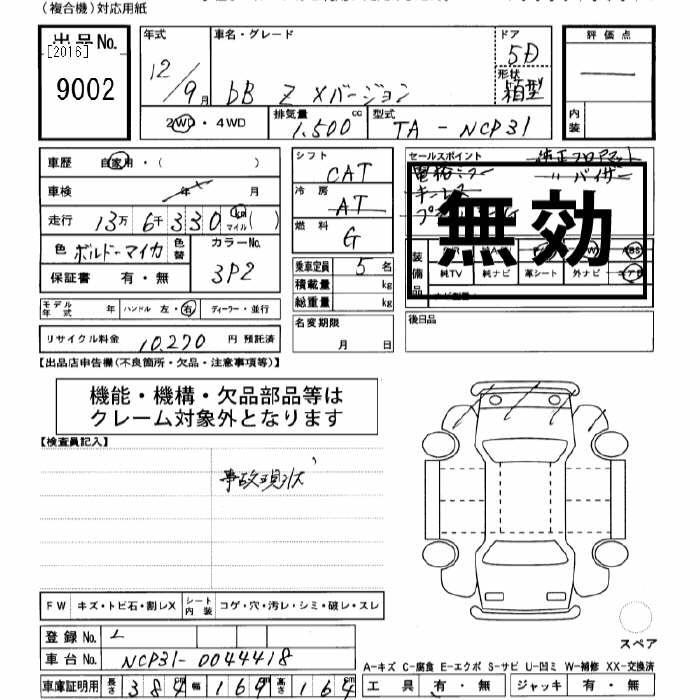 （複合機）対応用紙
出品No.
[2016]
9002
年式
12/9月
車名・グレード
bB Z Xバージョン
ドア
5D
形状
箱型
評価点
内装
2WD・4WD
排気量
1,500cc
型式
TA-NCP31
車歴 自家用・（ ）
車検 年 月
走行 13万6千330km（マイル）
色 ボルドーマイカ 色替
カラーNo.
3P2
保証書 有・無
モデル年式 年 ハンドル 左・右 ディーラー・並行
リサイクル料金 10,270円 預託済
シフト
CAT
冷房
AT
燃料
G
乗車定員 5名
積載量 kg
総重量 kg
名変期限
月 日
セールスポイント
純正フロアマット
電格ミラー 〃バイザー
キーレス
無効
装備品
純TV 純ナビ 革シート 外ナビ エアB
ABS
後日品
【出品店申告欄（不良箇所・欠品・注意事項等）】
機能・機構・欠品部品等は
クレーム対象外となります
【検査員記入】
事故現状
FW キズ・トビ石・割レX シート内装 コゲ・穴・汚レ・シミ・破レ・スレ
登録No.
車台No. NCP31-0044418
車庫証明用 長さ 384cm 幅 169cm 高さ 164cm
スペア
A-キズ C-腐食 E-エクボ S-サビ U-凹ミ W-補修 XX-交換済
工具 有・無 ジャッキ 有・無